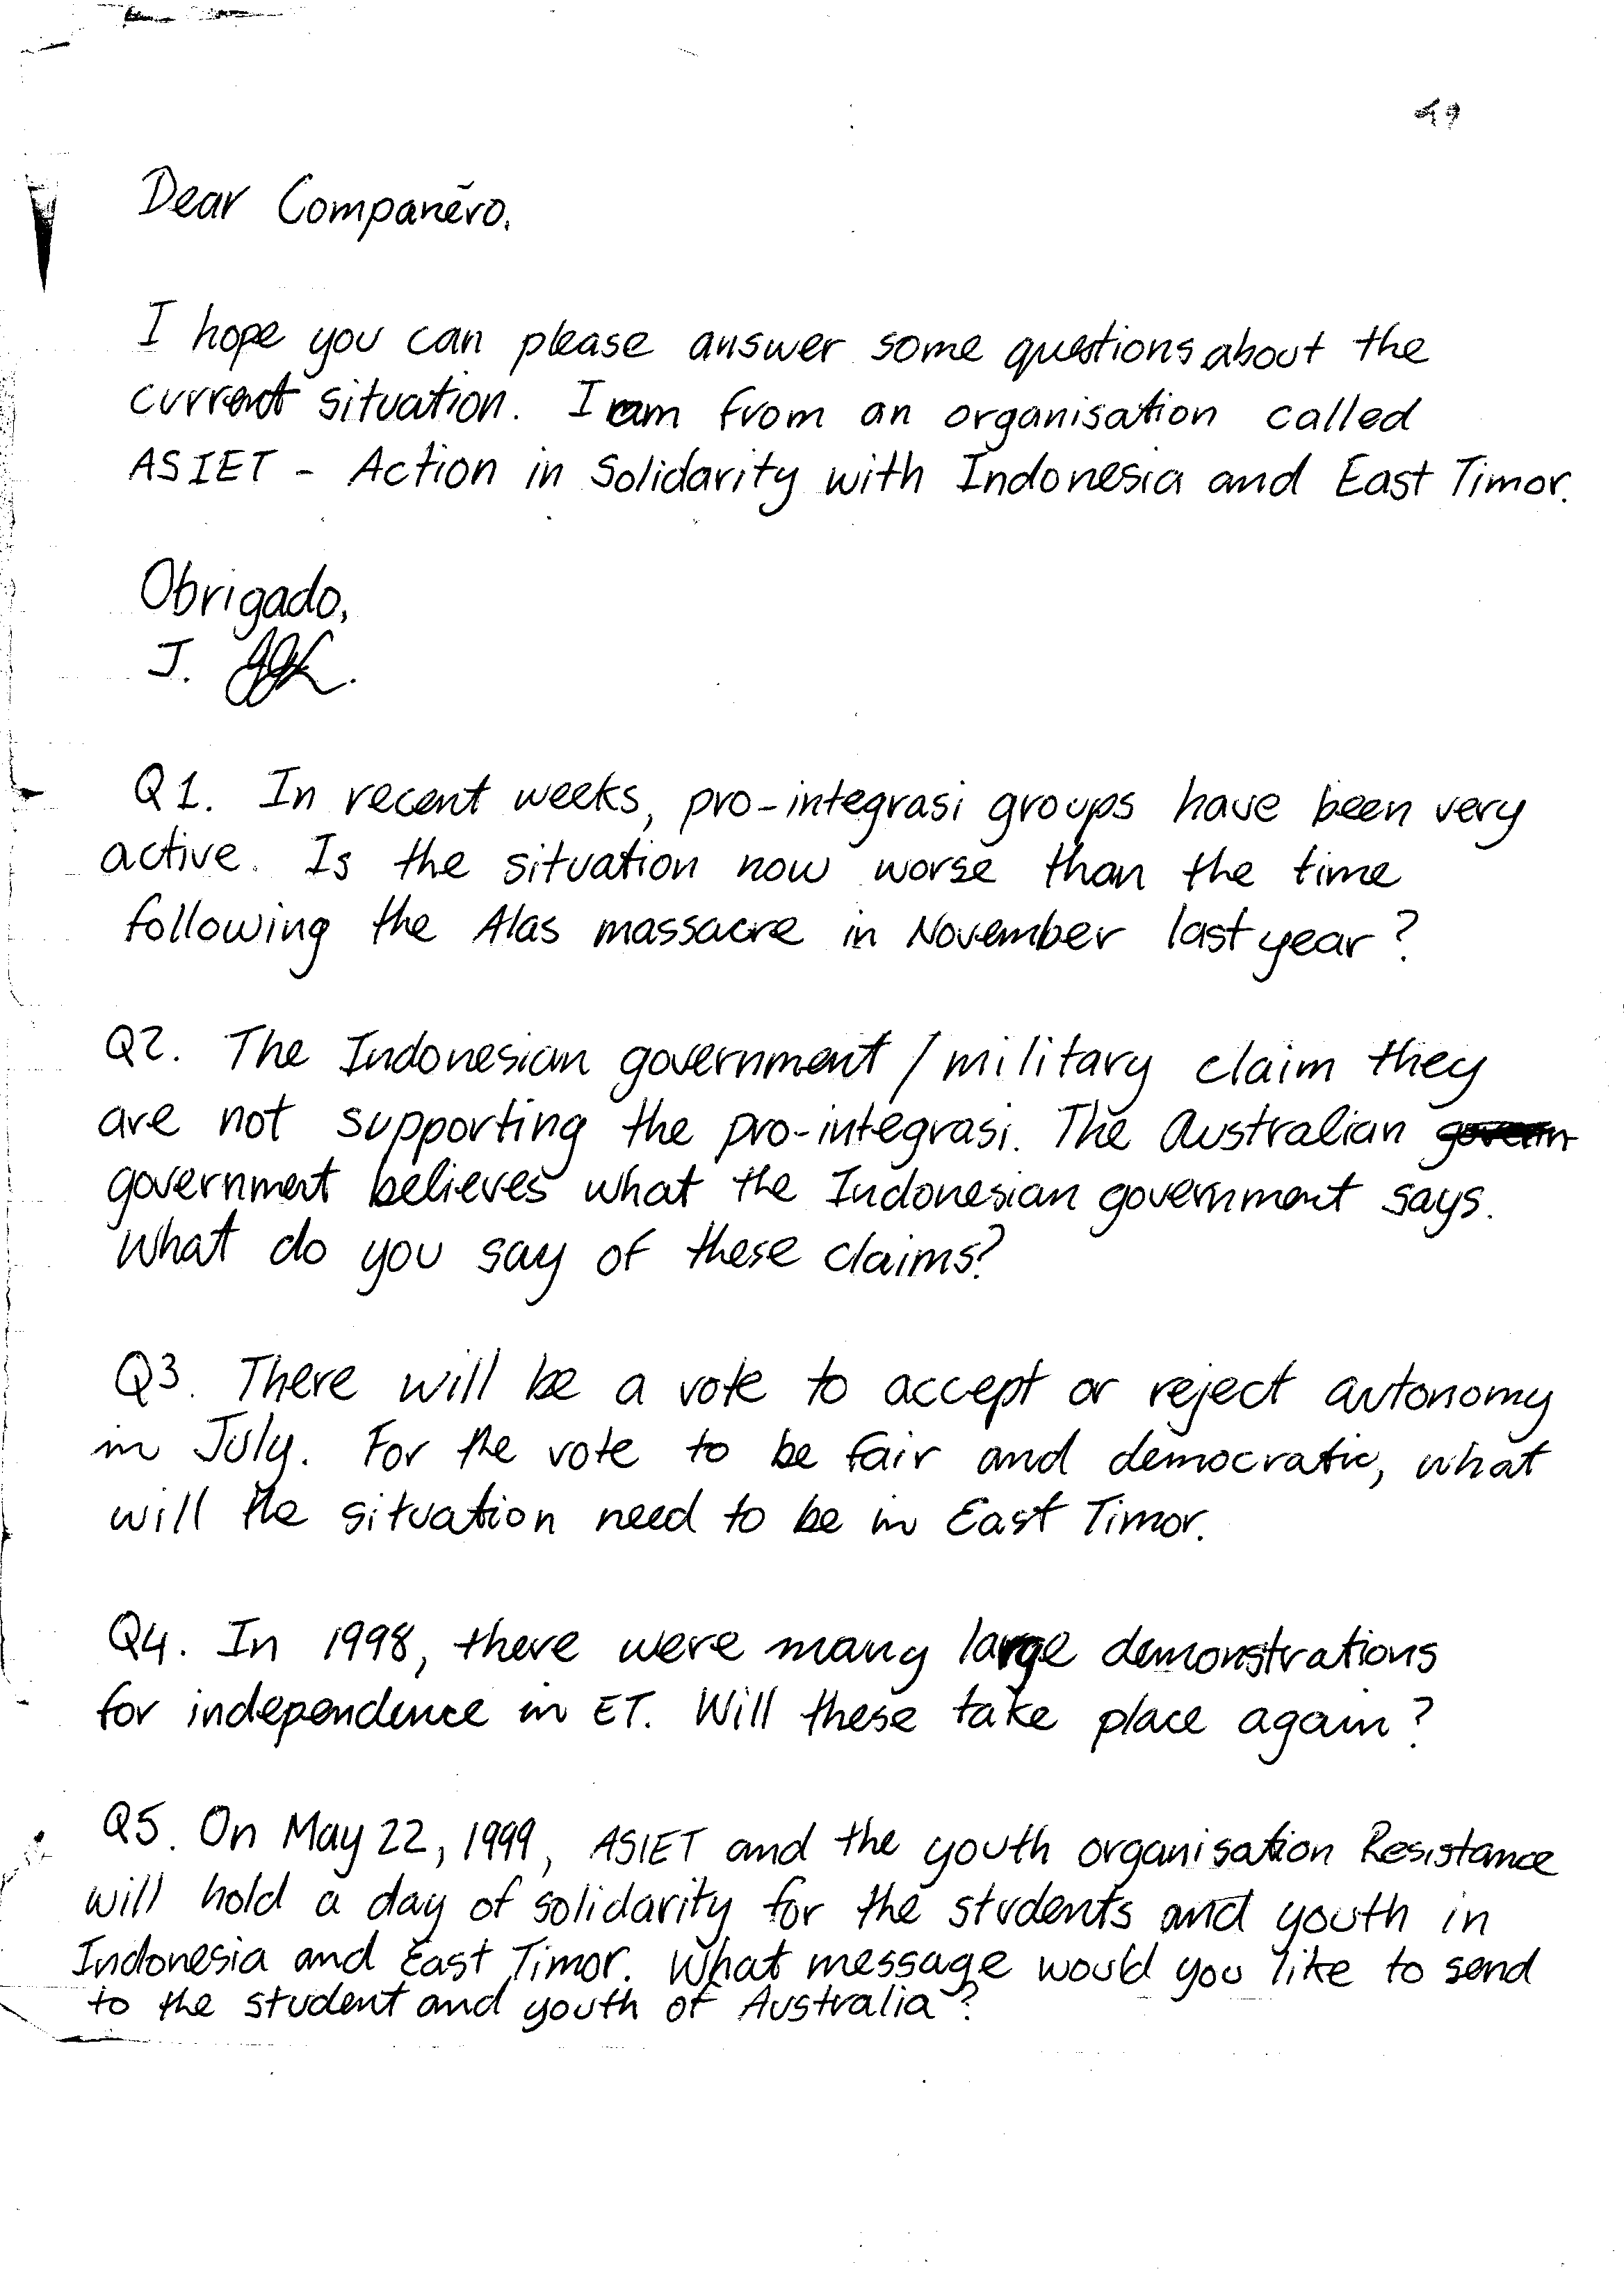 49
Dear Companẽro.
I hope you can please answer some questions about the
current situation. I am from an organisation called
ASIET - Action in Solidarity with Indonesia and East Timor.
Obrigado,
J.
Q1. In recent weeks, pro-integrasi groups have been very
active. Is the situation now worse than the time
following the Alas massacre in November last year?
Q2. The Indonesian government / military claim they
are not supporting the pro-integrasi. The Australian
government believes what the Indonesian government says.
What do you say of these claims?
Q3. There will be a vote to accept or reject autonomy
in July. For the vote to be fair and democratic, what
will the situation need to be in East Timor.
Q4. In 1998, there were many large demonstrations
for independence in ET. Will these take place again?
Q5. On May 22, 1999, ASIET and the youth organisation Resistance
will hold a day of solidarity for the students and youth in
Indonesia and East Timor. What message would you like to send
to the student and youth of Australia?